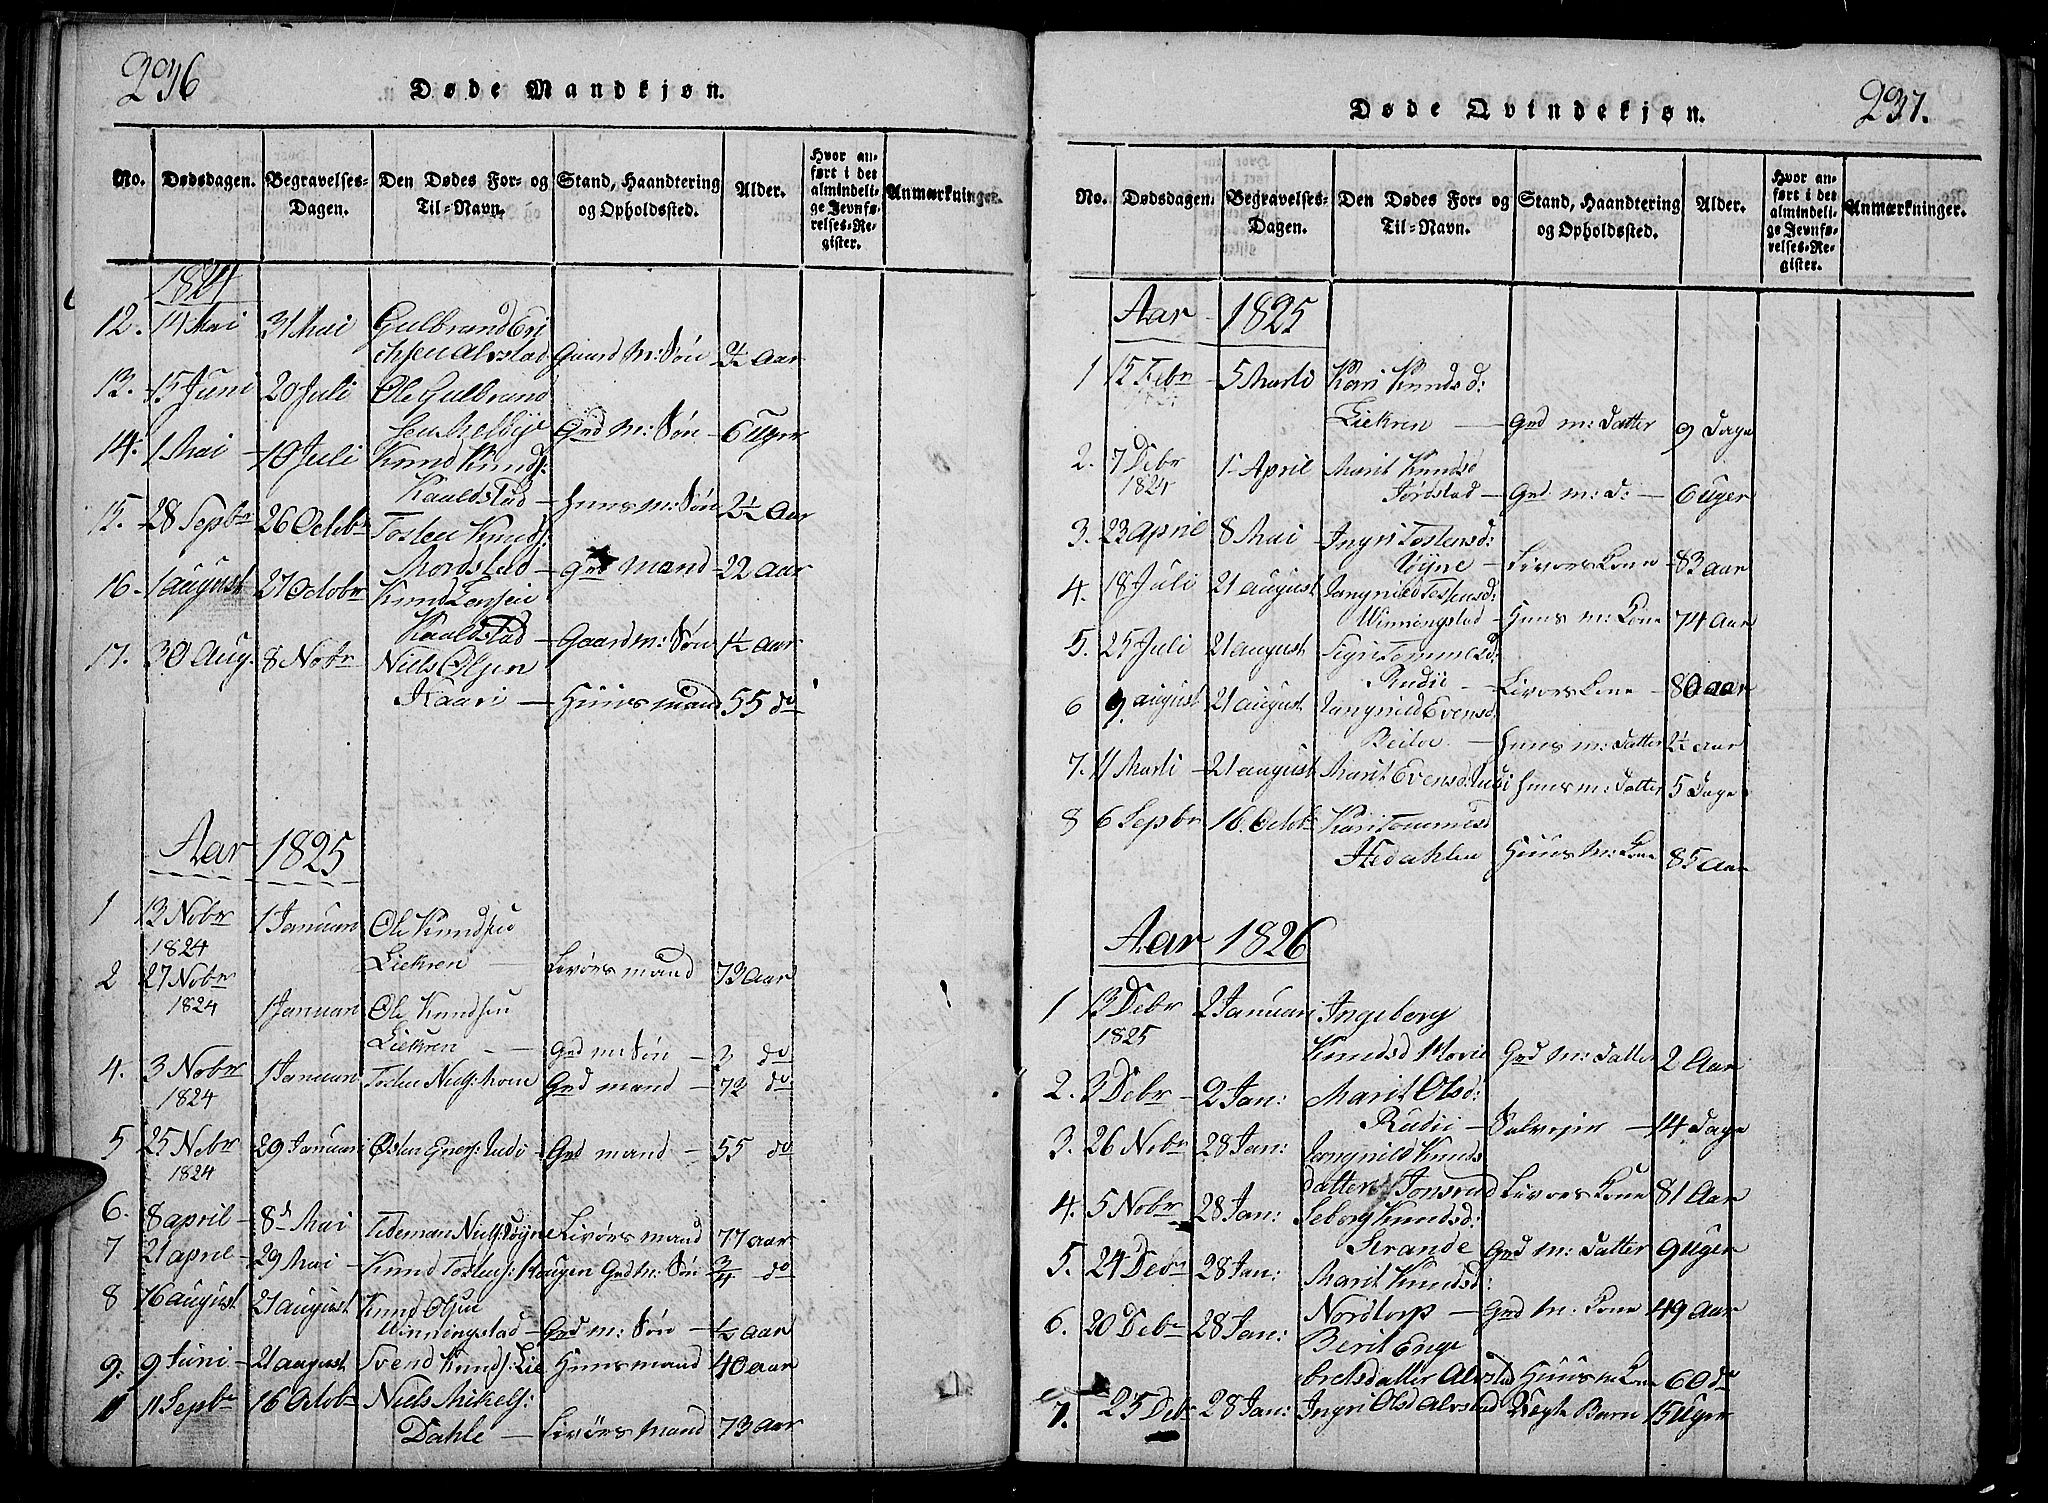 236
Døde Mandkjøn.
No. Dødsdagen. Begravelses-Dagen. Den Dødes For- og Til-Navn. Stand, Haandtering og Opholdssted. Alder. Hvor anført i det almindelige Jevnførelses-Register. Anmærkninger.
1824
12. 14 Mai 31 Mai Gulbrand Eri
chsen Alvstad Gaard M: Søn Aar
13. 15 Juni 20 Juli Ole Gulbrand
sen Melbye Grd M: Søn 6 Uger
14. 1 Mai 10 Juli Knud Knuds:
Kaaldstad Huus M: Søn 2½ Aar
15. 28 Sepbr 26 Octobr Tosten Knuds:
Mordstad Grd Mand 22 Aar
16. 1 august 27 Octobr Knud
Kaaldstad Gaard m: Søn 1½ Aar
17. 30 Aug. 8 Nobr Niels Olsen
Haari Huusmand 55 do
Aar 1825
1 13 Nobr 1 Januari Ole Knudsen
1824 Liekren Livørsmand 73 Aar
2 27 Nobr
1824 1 Januari Ole Knudsen
Liekren Grd m: Søn 2 do
4. 3 Nobr 1 Januari Tosten Niels: Moen Grd mand 72 do
1824
5 25 Nobr 29 Januari Østen Judi Grd mand 55 do
1824
6. 8 april 8d Mai Tideman Niels: Tøyne Livørsmand 77 aar
7 21 april 29 Mai Knud Tostens: Haugen Grd M: Søn ¾ do
8 16 august 21 august Knud Olsen
Winningstad Grd m: Søn ½ aar
9. 9 Juni 21 august Svend Knuds: Lie Huusmand 40 aar
11 Sepbr 16 Octobr Niels Mikels:
Dahle Livørsmand 73 Aar
237.
Døde Qvindekjøn.
No. Dødsdagen. Begravelses-Dagen. Den Dødes For- og Til-Navn. Stand, Haandtering og Opholdssted. Alder. Hvor anført i det almindelige Jevnførelses-Register. Anmærkninger.
Aar 1825
1 15 Febr 5 Marti Kari Knudsd:
Liekren Grd m: Datter 9 Dage
2. 7 Debr 1 April Marit Knudsd
1824 Jørdstad Grd m: D: 6 Uger
3. 23 April 8 Mai Ingri Tostensd:
Tøyne Livørs Kone 83 aar
4. 18 Juli 21 august Rangnild Tostensd:
Winningstad Huus m: Kone 74 Aar
5. 25 Juli 21 august Sigri Tommesd:
Rudii Livørs Kone 80 aar
6 9. august 21 august Rangnild Evensd:
Beitoe Huus m: Datter aar
7. 11 Marti 21 august Marit Evensd: Judi Huus m: Datter 5 Dage
8 6 Sepbr 16. Octobr Kari Tommesd
Hedahlen Huus M: Kone 85 Aar
Aar 1826
1 13 Debr 2 Januari Ingeborg
1825 Knudsd Movie Grd M: Datter 2 Aar
2. 3 Debr 2 Jan: Marit Olsd:
Rudii Salvejer 14 Dage
3. 26 Nobr 28 Jan: Rangnild Knuds
datter Jonsrud Livørs Kone 81 Aar
4. 5 Nobr 28 Jan: Seborg Knudsd:
Strande Grd m: Datter 9 Uger
5. 24 Debr 28 Jan: Marit Knudsd:
Nordtorp Grd M: Kone 49 Aar
6. 20 Debr 28 Jan: Berit Enge
bretsdatter Alvstad Huus m: Kone 60 do
7. 25 Debr 28 Jan: Ingri Olsd Alvstad Uægte Barn 15 Uger